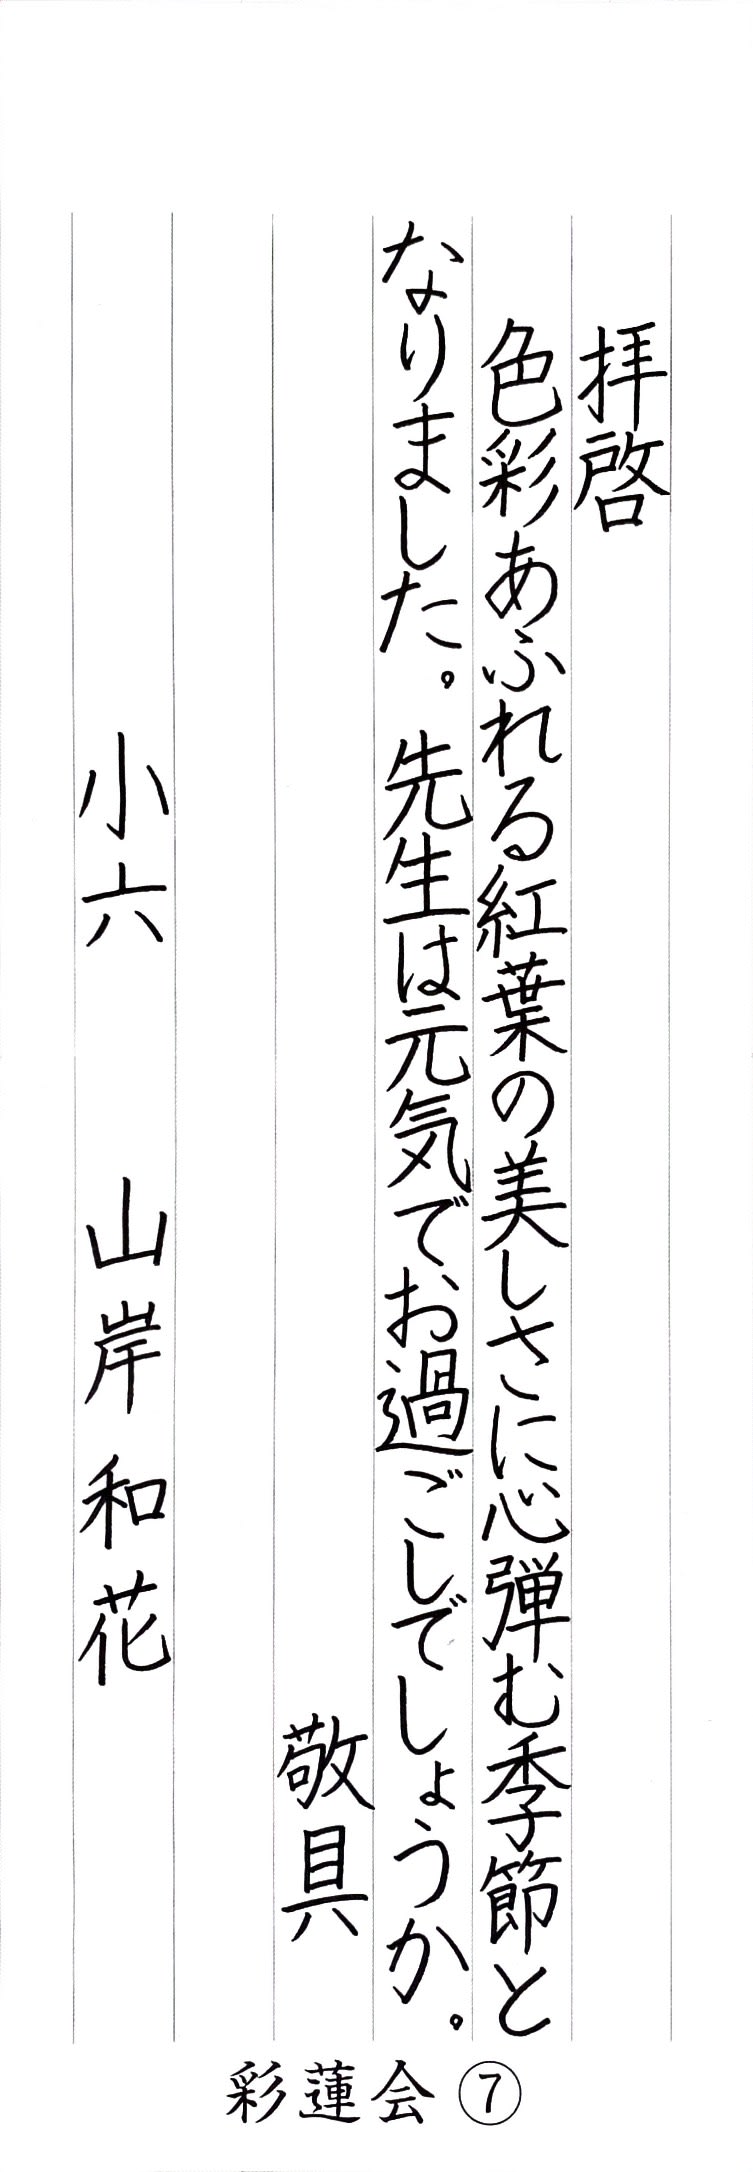 拝啓
色彩あふれる紅葉の美しさに心弾む季節と
なりました。先生は元気でお過ごしでしょうか。
敬具
小六 山岸和花
彩蓮会⑦